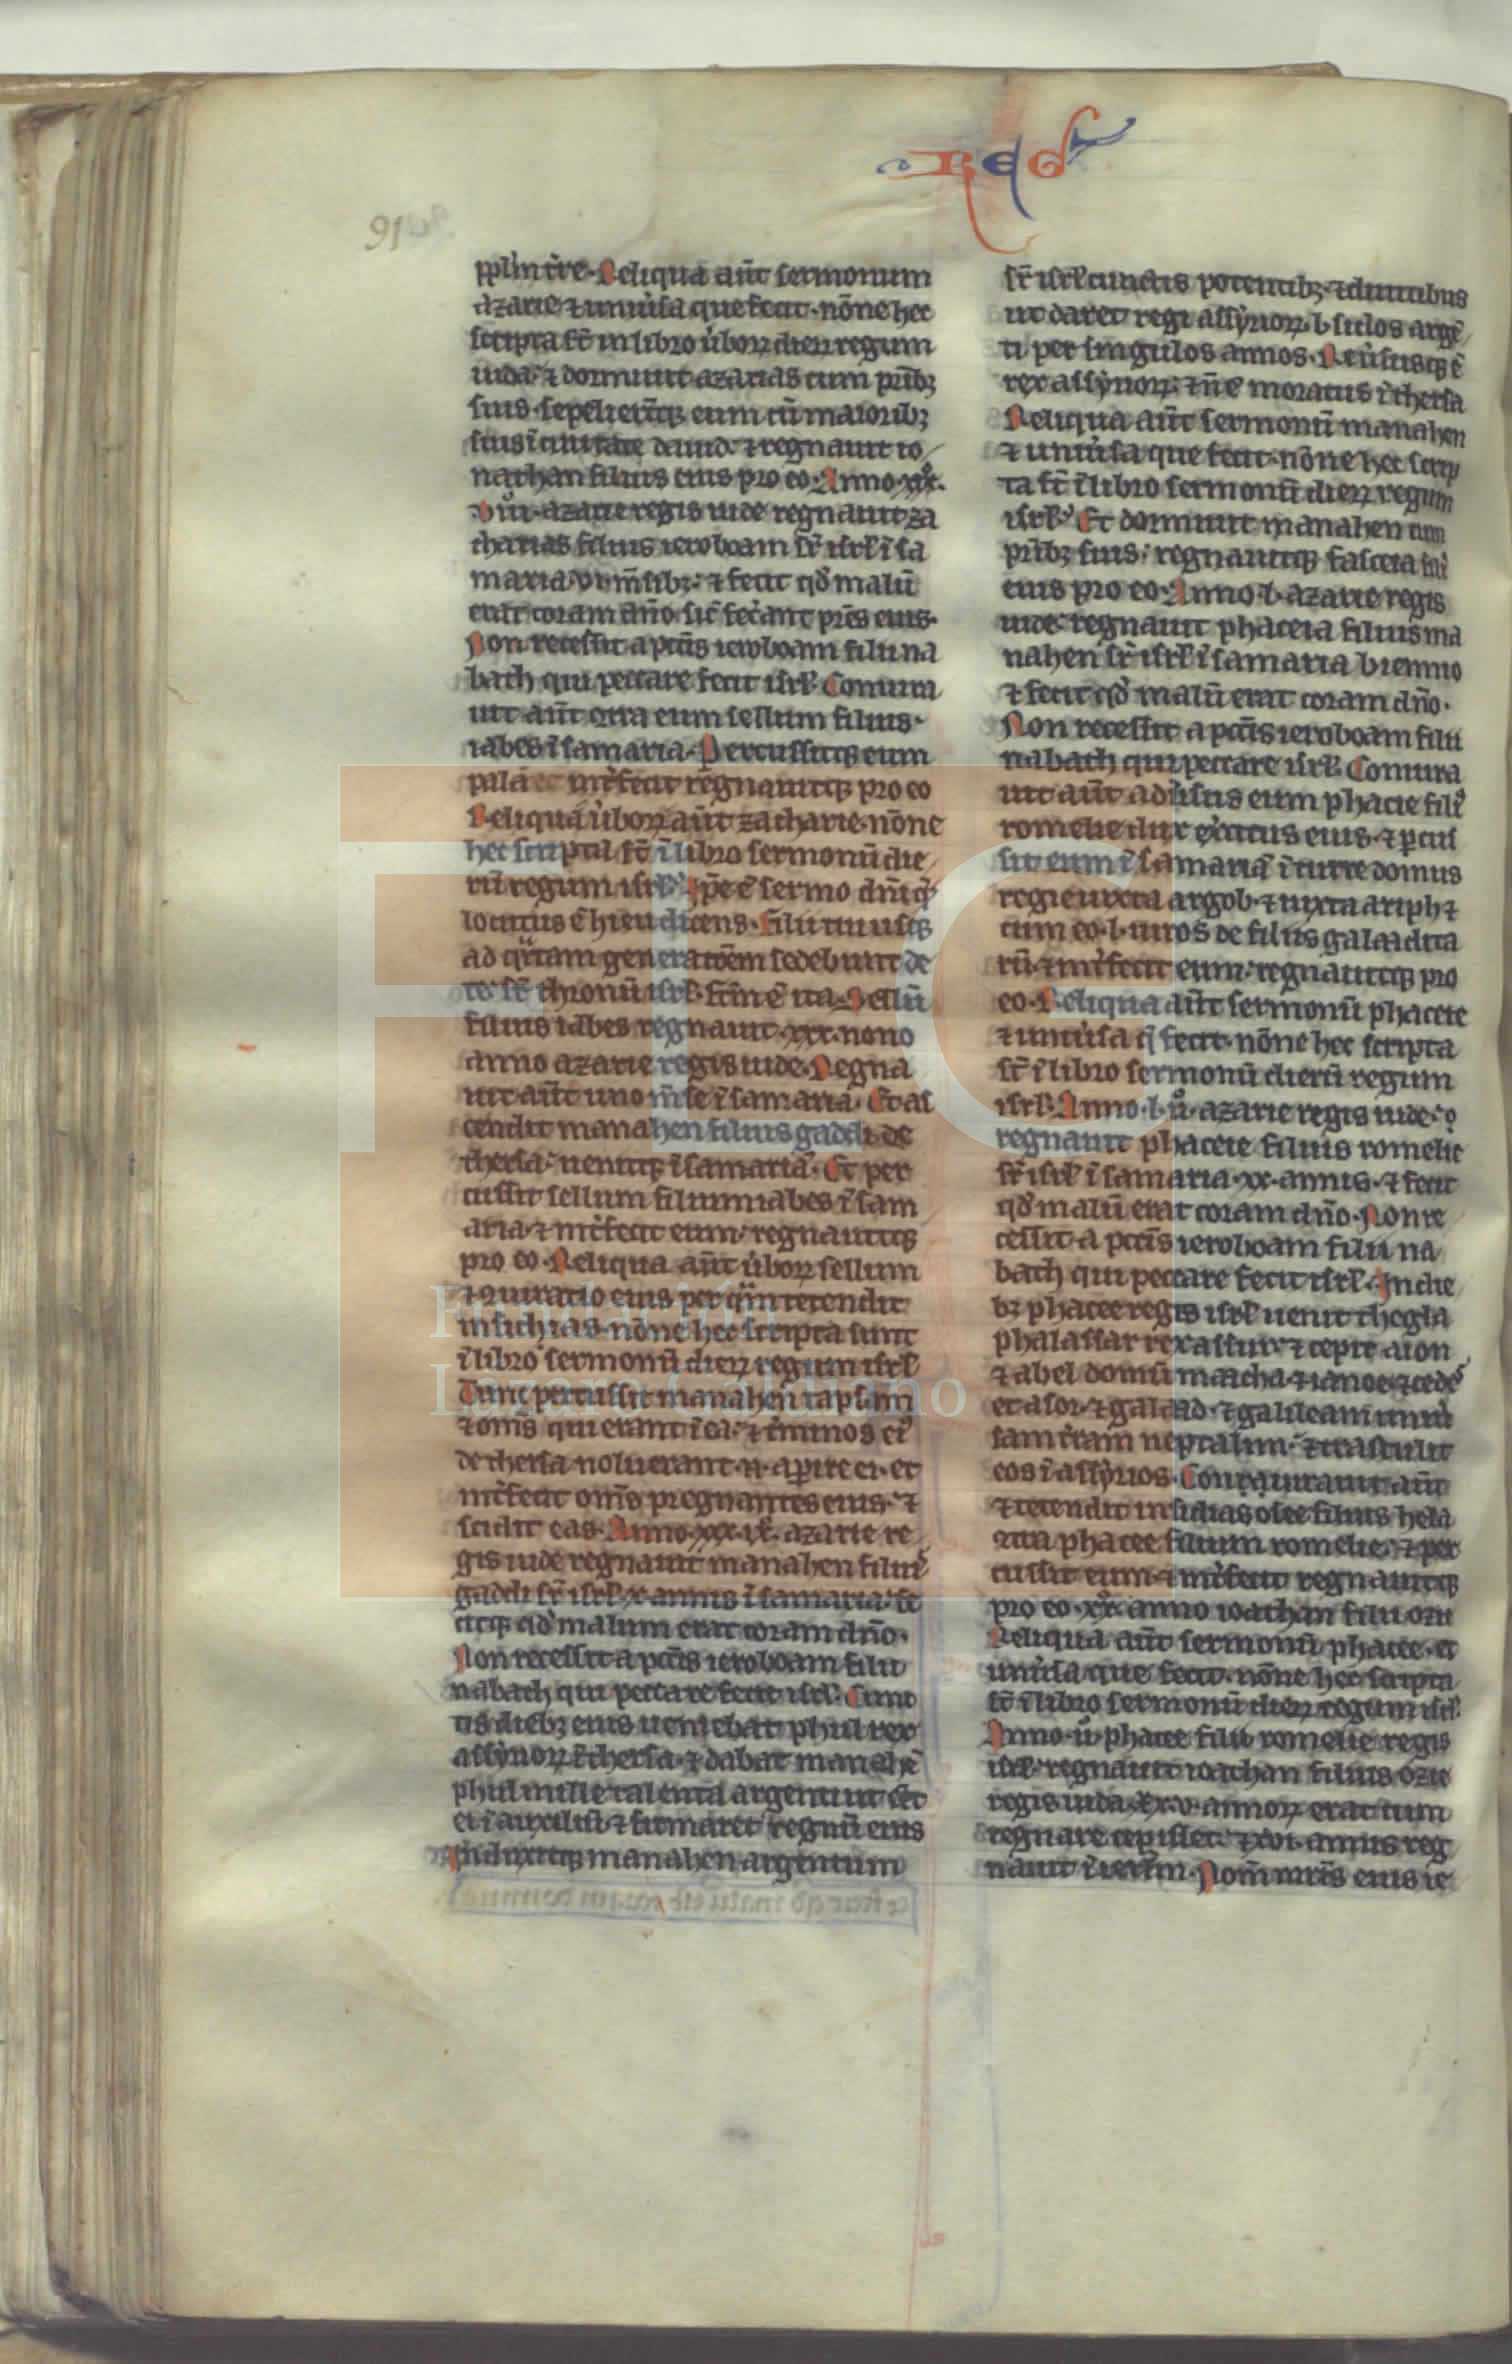 REG
91
pplm tre. Reliqua aut sermonum
azarie ⁊ uniusa que fecit. nõne hec
scripta st̃ in libro ũboꝝ dieꝝ regum
iuda. ⁊ dormiuit azarias cum prĩbꝫ
suis. sepelierũtqꝫ eum cũ maioribꝫ
suis ĩ ciuitate dauid. ⁊ regnauit io
nathan filius eius pro eo. Anno xxx.
uiii. azarie regis iude regnauit za
charias filius ieroboam sr̃ isrł ĩ sa
maria. vi. m̃sibꝫ. ⁊ fecit qđ malũ
erat coram dño. sic̃ fecant prẽs eius.
Non recessit a pctĩs ieroboam filii na
bath qui peccare fecit isrł. Coniura
uit aut̃ ctra eum sellum filius
iabes ĩ samaria. Percussitqꝫ eum
palã et int̃fecit regnauitqꝫ pro eo
Reliqua ũboꝝ aut̃ zacharie. nõne
hec scripta st̃ ĩ libro sermonũ die
rũ regum isrł. Ip̃e ẽ sermo dñi q̃
locutus ẽ hieu dicens. Filii tui usqꝫ
ad q̃rtam generatõem sedebunt de
te sr̃ thronũ isrł. fc̃m ẽ ita. Sellũ
filius iabes regnauit. xxx. nono
anno azarie regis iude. Regna
uit aut̃ uno m̃se ĩ samaria. Et as
cendit manahen filius gaddi de
thersa. uenitqꝫ ĩ samariã. Et per
cussit sellum filium iabes ĩ sam
aria. ⁊ int̃fecit eum. regnauitqꝫ
pro eo. Reliqua aut̃ ũboꝝ sellum
⁊ 9iuratio eius per q̃m tetendit
insidias. nõne hec scripta sunt
ĩ libro sermonũ dieꝝ regum isrł
Tunc percussit manahen tapsam
⁊ om̃s qui erant ĩ ea. ⁊ t̃minos ei9
de thersa. noluerant. n. aperire ei. et
int̃fecit om̃s pregnantes eius. ⁊
scidit eas. Anno xxx. ix. azarie re
gis iude regnauit manahen filiu9
gaddi sr̃ isrł. x. annis ĩ samaria. fe
citqꝫ qđ malum erat coram dño.
Non recessit a pctĩs ieroboam filii
nabath qui peccare fecit isrł. Cunc
tis diebꝫ eius ueniebat phul rex
assyrioꝝ ĩ thersa. ⁊ dabat manahẽ
phul mille talenta argenti ut eẽt
ei ĩ auxiliũ. ⁊ firmaret regnũ eius
Indixitqꝫ manahen argentum
sr̃ isrł cunctis potentibꝫ. ⁊ diuitibus
ut daret regi assyrioꝝ. l. siclos argẽ
ti per singulos annos. Reũsusqꝫ ẽ
rex assyrioꝝ. ⁊ ñ ẽ moratus ĩ thersa
Reliqua aut̃ sermonũ manahen
⁊ uniũsa que fecit. nõne hec scrip
ta st̃ ĩ libro sermonũ dieꝝ regum
isrł. Et dormiuit manahen cum
prĩbꝫ suis. regnauitqꝫ fasceia fili9
eius pro eo. Anno. l. azarie regis
iude regnauit phaceia filius ma
nahen sr̃ isrł ĩ samaria biennio
⁊ fecit qđ malũ erat coram dño.
Non recessit a pctĩs ieroboam filii
nabath qui peccare isrł. Coniura
uit aut̃ aduersus eum phacee fili9
romelie dux exercitus eius. ⁊ percus
sit eum ĩ samaria ĩ turre domus
regie iuxta argob. ⁊ iuxta ariph. ⁊
cum eo. l. uiros de filiis galaadita
rũ. ⁊ int̃fecit eum. regnauitqꝫ pro
eo. Reliqua aut̃ sermonũ phaceie
⁊ uniũsa q̃ fecit. nõne hec scripta
st̃ ĩ libro sermonũ dierũ regum
isrł. Anno. l. ii. azarie regis iude.
regnauit phaceie filius romelie
sr̃ isrł ĩ samaria. xx. annis. ⁊ fecit
qđ malũ erat coram dño. Non re
cessit a pctĩs ieroboam filii na
bath qui peccare fecit isrł. In die
bꝫ phacee regis isrł uenit thegla
phalassar rex assur. ⁊ cepit. aion
⁊ abel domũ maacha. ⁊ ianoe. ⁊ cedes
et asor. ⁊ galaad. ⁊ galileam uniũ
sam terram neptalim. ⁊ trastulit
eos ĩ assyrios. Coniurauit aut̃
⁊ tetendit insidias osee filius hela
9tra phacee filium romelie. ⁊ per
cussit eum ⁊ int̃fecit regnauitqꝫ
pro eo. xx. anno ioathan filii ozie
Reliqua aut̃ sermonũ phacee. et
uniũsa que fecit. nõne hec scripta
st̃ ĩ libro sermonũ dieꝝ regum isrł.
Anno. ii. phacee filii romelie regis
isrł. regnauit ioathan filius ozie
regis iuda. xx. v. annoꝝ erat cum
regnare cepisset. ⁊ xvi. annis reg
nauit ĩ ierłm. Nom̃ mr̃is eius ie
FLG
Fundación
Lázaro Galdiano